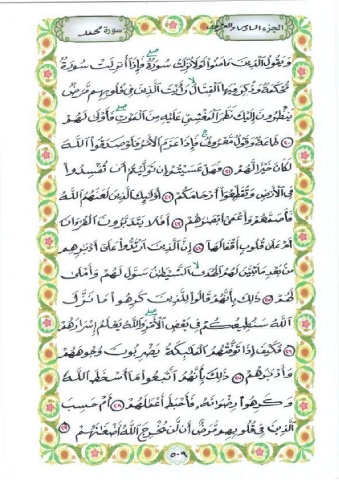 الجزء السادس والعشرون سورة محمد
وَيَقُولُ الَّذِينَ ءَامَنُوا لَوْلَا نُزِّلَتْ سُورَةٌ فَإِذَا أُنزِلَتْ سُورَةٌ
مُّحْكَمَةٌ وَذُكِرَ فِيهَا الْقِتَالُ رَأَيْتَ الَّذِينَ فِي قُلُوبِهِم مَّرَضٌ
يَنظُرُونَ إِلَيْكَ نَظَرَ الْمَغْشِيِّ عَلَيْهِ مِنَ الْمَوْتِ فَأَوْلَىٰ لَهُمْ
٢٠ طَاعَةٌ وَقَوْلٌ مَّعْرُوفٌ فَإِذَا عَزَمَ الْأَمْرُ فَلَوْ صَدَقُوا اللَّهَ
لَكَانَ خَيْرًا لَّهُمْ ٢١ فَهَلْ عَسَيْتُمْ إِن تَوَلَّيْتُمْ أَن تُفْسِدُوا
فِي الْأَرْضِ وَتُقَطِّعُوا أَرْحَامَكُمْ ٢٢ أُولَٰئِكَ الَّذِينَ لَعَنَهُمُ اللَّهُ
فَأَصَمَّهُمْ وَأَعْمَىٰ أَبْصَٰرَهُمْ ٢٣ أَفَلَا يَتَدَبَّرُونَ الْقُرْءَانَ
أَمْ عَلَىٰ قُلُوبٍ أَقْفَالُهَا ٢٤ إِنَّ الَّذِينَ ارْتَدُّوا عَلَىٰ أَدْبَٰرِهِم
مِّن بَعْدِ مَا تَبَيَّنَ لَهُمُ الْهُدَى الشَّيْطَٰنُ سَوَّلَ لَهُمْ وَأَمْلَىٰ
لَهُمْ ٢٥ ذَٰلِكَ بِأَنَّهُمْ قَالُوا لِلَّذِينَ كَرِهُوا مَا نَزَّلَ
اللَّهُ سَنُطِيعُكُمْ فِي بَعْضِ الْأَمْرِ وَاللَّهُ يَعْلَمُ إِسْرَارَهُمْ
٢٦ فَكَيْفَ إِذَا تَوَفَّتْهُمُ الْمَلَٰئِكَةُ يَضْرِبُونَ وُجُوهَهُمْ
وَأَدْبَٰرَهُمْ ٢٧ ذَٰلِكَ بِأَنَّهُمُ اتَّبَعُوا مَا أَسْخَطَ اللَّهَ
وَكَرِهُوا رِضْوَٰنَهُ فَأَحْبَطَ أَعْمَٰلَهُمْ ٢٨ أَمْ حَسِبَ
الَّذِينَ فِي قُلُوبِهِم مَّرَضٌ أَن لَّن يُخْرِجَ اللَّهُ أَضْغَٰنَهُمْ ٢٩
٥٠٩